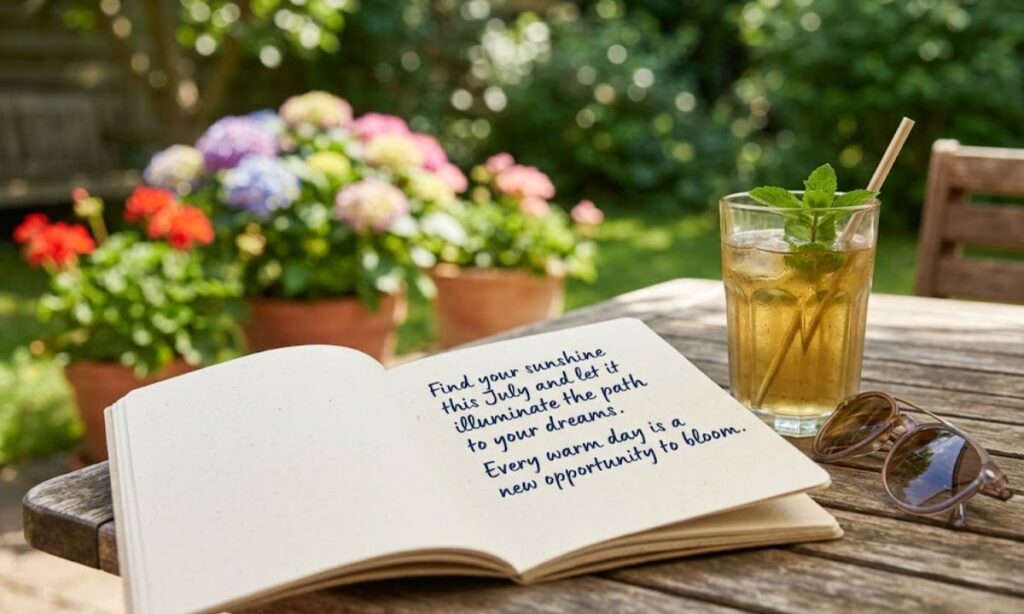 Find your sunshine
this July and let it
illuminate the path
to your dreams.
Every warm day is a
new opportunity to bloom.